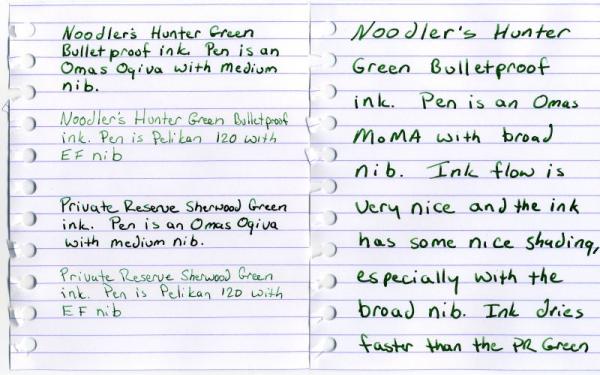 Noodler's Hunter Green
Bulletproof ink. Pen is an
Omas Ogiva with medium
nib.
Noodler's Hunter Green Bulletproof
ink. Pen is Pelikan 120 with
EF nib
Private Reserve Sherwood Green
ink. Pen is an Omas Ogiva
with medium nib.
Private Reserve Sherwood Green
ink. Pen is Pelikan 120 with
EF nib
Noodler's Hunter
Green Bulletproof
ink. Pen is an Omas
MoMA with broad
nib. Ink flow is
very nice and the ink
has some nice shading,
especially with the
broad nib. Ink dries
faster than the PR Green